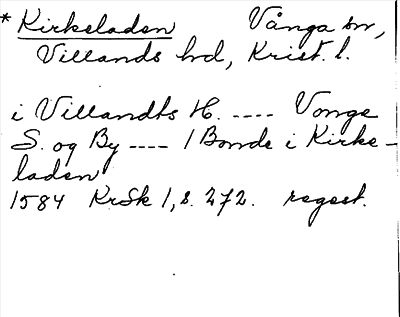 * Kirkeladen Vånga sn,
Villands hd, Krist. l.
i Villandts H. ---- Vonge
S. og By ---- 1 Bonde i Kirke-
laden
1584 KrSk 1, s. 272. regest.